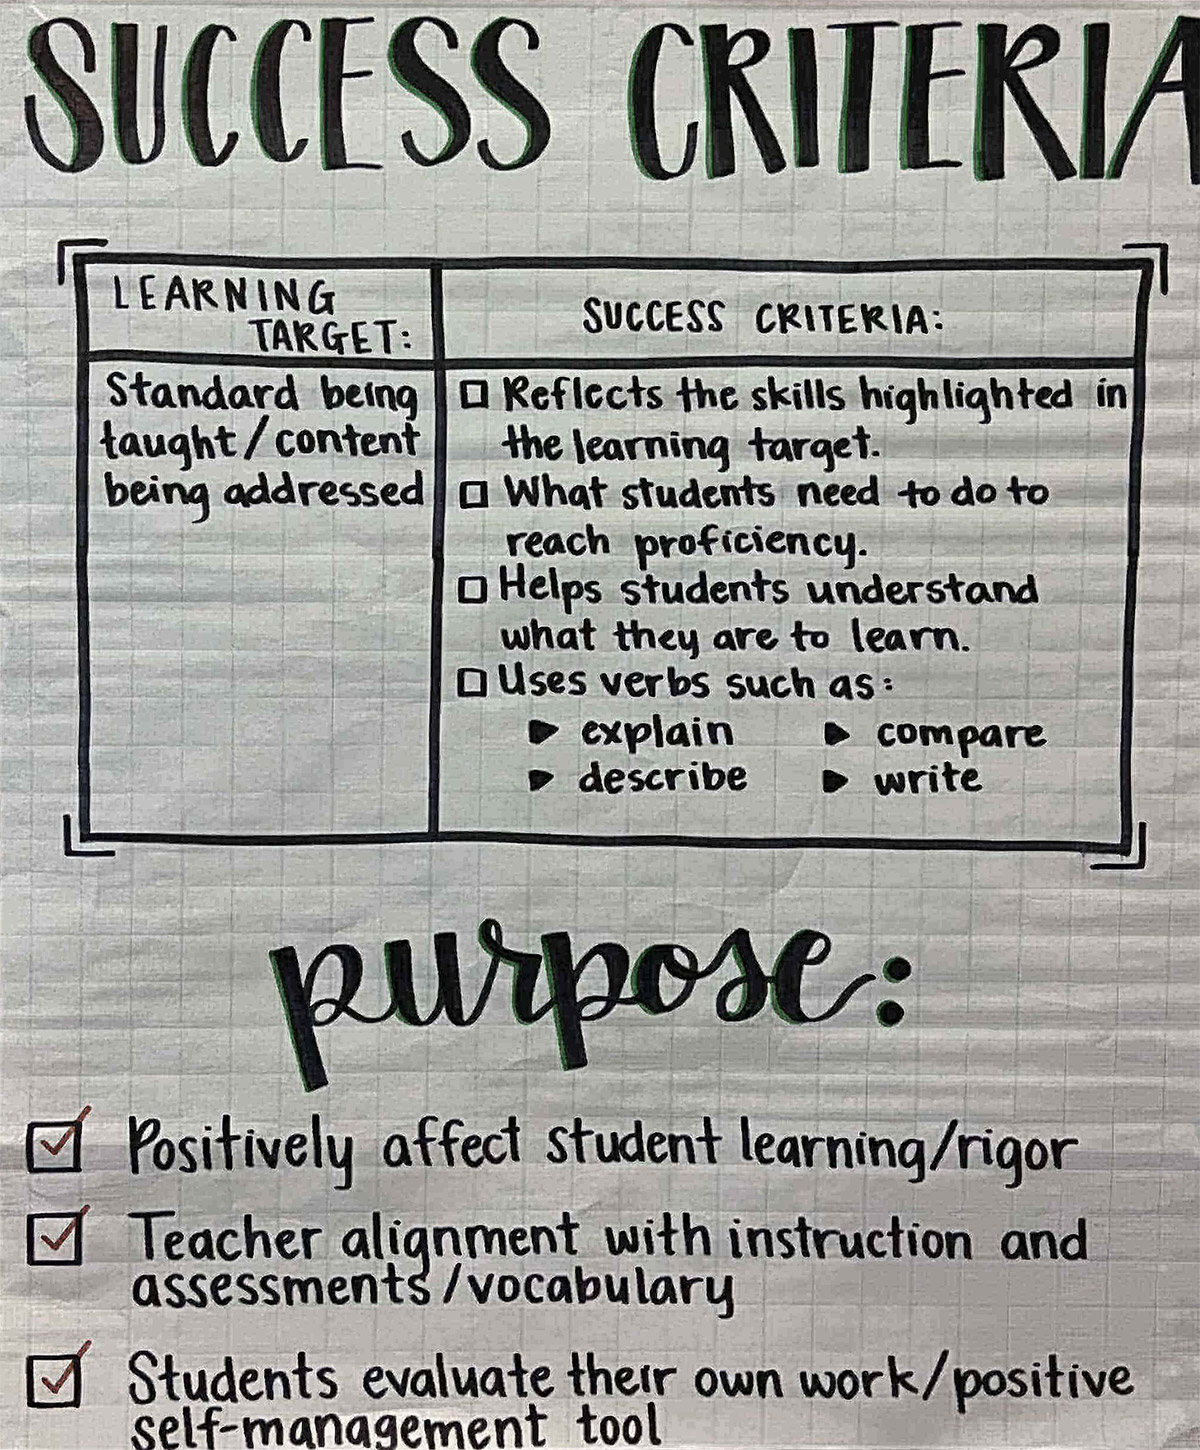 SUCCESS CRITERIA
LEARNING
TARGET:
Standard being
taught/content
being addressed
SUCCESS CRITERIA:
☐ Reflects the skills highlighted in
the learning target.
☐ What students need to do to
reach proficiency.
☐ Helps students understand
what they are to learn.
☐ Uses verbs such as:
▶ explain ▶ compare
▶ describe ▶ write
purpose:
☑ Positively affect student learning/rigor
☑ Teacher alignment with instruction and
assessments/vocabulary
☑ Students evaluate their own work/positive
self-management tool